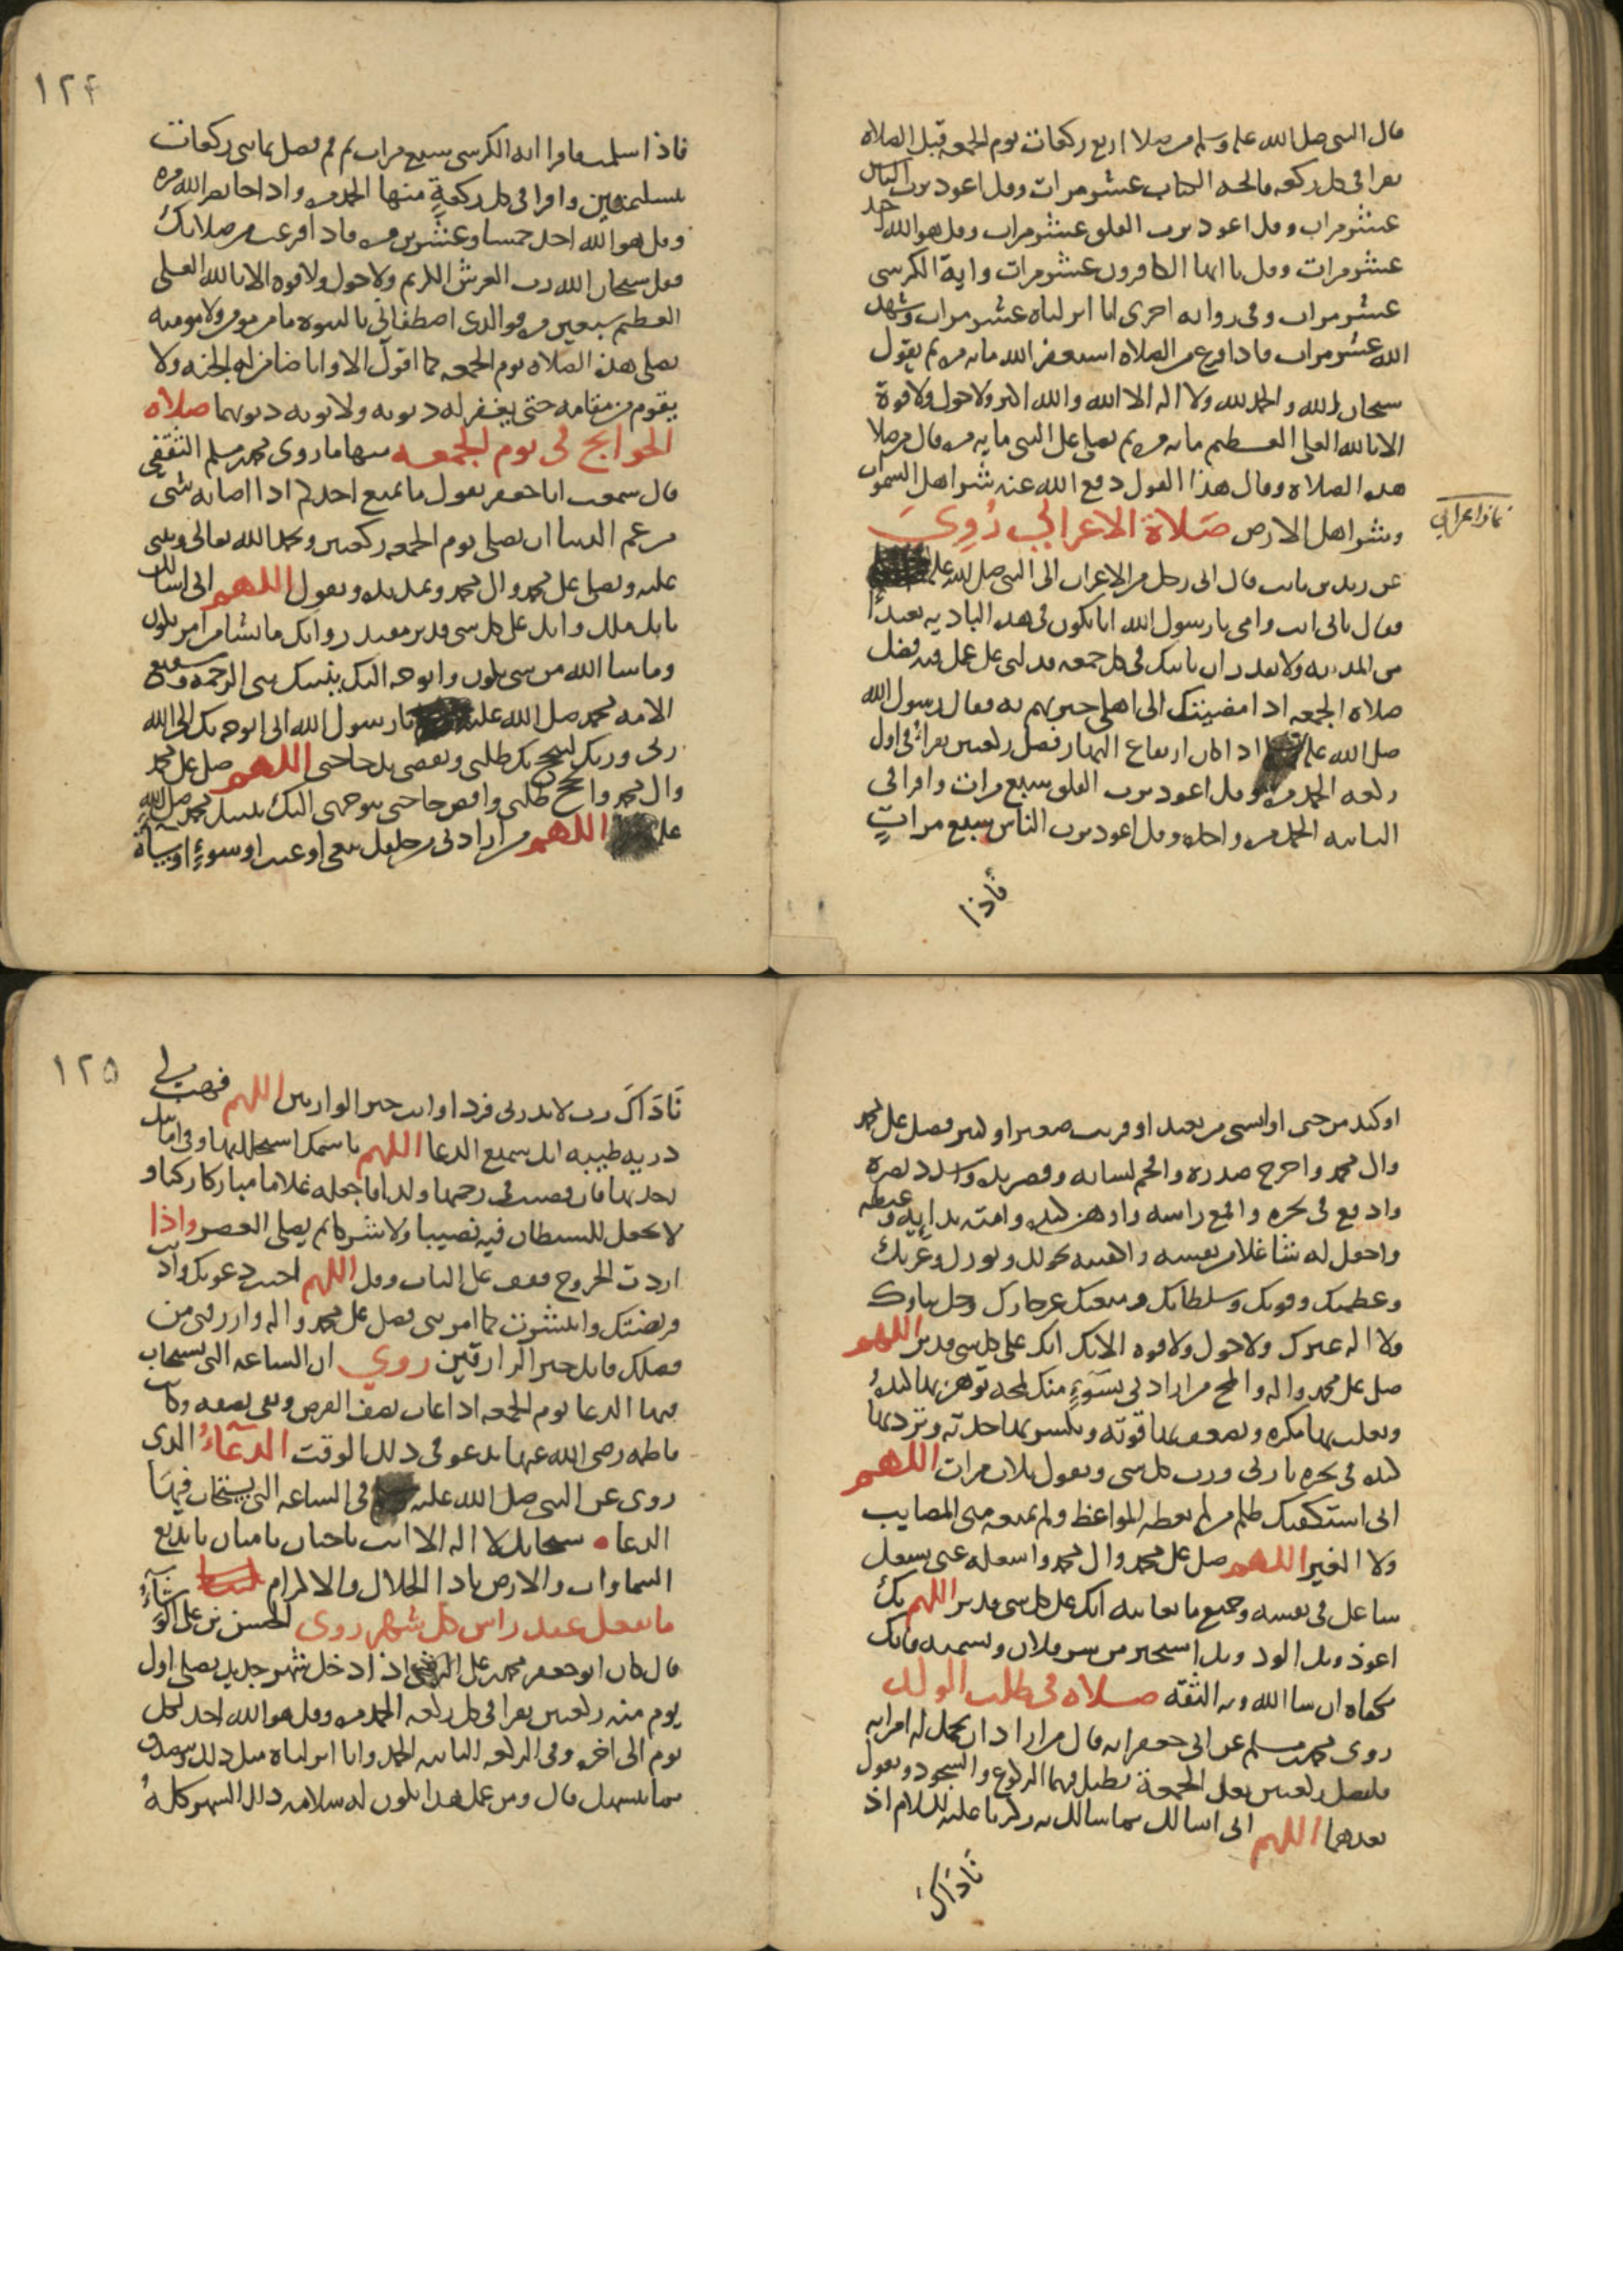 قال النبي صلى الله عليه وسلم من صلا اربع ركعات يوم الجمعه قبل الصلاه
يقرا في كل ركعه فاتحه الكتاب عشر مرات وقل اعوذ برب الناس
عشر مرات وقل اعوذ برب الفلق عشر مرات وقل هو الله احد
عشر مرات وقل يا ايها الكافرون عشر مرات واية الكرسي
عشر مرات وفي روايه اخرى انا انزلناه عشر مرات وشهد
الله عشر مرات فاذا فرغ من الصلاه استغفر الله مايه مره ثم يقول
سبحان الله والحمد لله ولا اله الا الله والله اكبر ولا حول ولا قوة
الا بالله العلي العظيم مايه مره ثم يصلي على النبي مايه مره قال من صلا
هذه الصلاه وقال هذا القول دفع الله عنه شر اهل السموات
وشر اهل الارض صَلاة الاعرابي رُوِيَ
نماز اعرابي
عن زيد بن ثابت قال اتى رجل من الاعراب الى النبي صلى الله عليه
فقال بابي انت وامي يا رسول الله انا نكون في هذه الباديه بعيداً
من المدينه ولا نقدر ان ناتيك في كل جمعه فدلني على عمل فيه فضل
صلاه الجمعه اذا مضيت الى اهلي خبرتهم به فقال رسول الله
صلى الله عليه اذا كان ارتفاع النهار فصل ركعتين تقرا في اول
ركعه الحمد مره وقل اعوذ برب الفلق سبع مرات واقرا في
الثانيه الحمد مره واحده وقل اعوذ برب الناس سبع مراتٍ
فاذا
١٢٤
فاذا سلمت فاقرا ايه الكرسي سبع مرات ثم قم فصل ثماني ركعات
بتسليمتين واقرا في كل ركعةٍ منها الحمد مره واذا جا نصر الله مره
وقل هو الله احد خمسا وعشرين مره فاذا فرغت من صلاتك
فقل سبحان الله رب العرش الكريم ولا حول ولا قوه الا بالله العلي
العظيم سبعين مره فوالذي اصطفاني بالنبوه ما من مومن ولا مومنه
يصلي هذه الصلاه يوم الجمعه كما اقول الا وانا ضامن له الجنه ولا
يقوم من مقامه حتى يغفر له ذنوبه ولابويه ذنوبهما صلاه
الحوايج في يوم الجمعه منها ما روى محمد بن مسلم الثقفي
قال سمعت ابا جعفر يقول ما يمنع احدكم اذا اصابه شي
من غم الدنيا ان يصلي يوم الجمعه ركعتين ويحمد الله تعالى ويثني
عليه ويصلي على محمد وال محمد ويمد يده ويقول اللهم اني اسالك
بانك ملك وانك على كل شي قدير مقتدر وانك ما تشا من امر يكون
وما شا الله من شي يكون واتوجه اليك بنبيك نبي الرحمه وشفيع
الامه محمد صلى الله عليه يا رسول الله اني اتوجه بك الى الله
ربي وربك لينجح بك طلبتي ويقضي بك حاجتي اللهم صل على محمد
وال محمد وانجح طلبتي واقض حاجتي بتوجهي اليك بنبيك محمد صلى الله
عليه اللهم من ارادني من خلقك ببغي او عنت او سوءٍ او مساة
او كيد من جني او انسي من بعيد او قريب صغير او كبير فصل على محمد
وال محمد واحرج صدره وافحم لسانه وقصر يده واسدد بصره
وادفع في نحره واقمع راسه واوهن كيده وامته بدايه وغيظه
واجعل له شاغلا من نفسه واكفنيه بحولك وقوتك وعزتك
وعظمتك وقدرتك وسلطانك ومنعتك عز جارك وجل ثناوك
ولا اله غيرك ولا حول ولا قوه الا بك انك على كل شي قدير اللهم
صل على محمد واله والمح من ارادني بسَوءٍ منك لمحه توهن بها كيدهُ
وتغلب بها مكره وتضعف بها قوته وتكسر بها حدته وترد بها
كيده في نحره يا ربي ورب كل شي وتقول ثلاث مرات اللهم
اني استكفيك ظلم من لم تعظه المواعظ ولم تمنعه مني المصايب
ولا الغير اللهم صل على محمد وال محمد واشغله عني بشغل
شاغل في نفسه وجميع ما يعانيه انك على كل شي قدير اللهم بك
اعوذ وبك الوذ وبك استجير من شر فلان وتسميه فانك
تكفاه ان شا الله وبه الثقه صلاه في طلب الولد
روى محمد بن مسلم عن ابي جعفر انه قال من اراد ان تحمل له امراته
فليصل ركعتين بعد الجمعة يطيل فيهما الركوع والسجود ويقول
بعدهما اللهم اني اسالك بما سالك به زكريا عليه السلام اذ
نَادَاكَ
١٢٥
نَادَاكَ رب لا تذرني فردا وانت خير الوارثين اللهم فهب لي
ذريه طيبه انك سميع الدعا اللهم باسمك استحللتها وفي امانتك
اخذتها فان قضيت في رحمها ولدا فاجعله غلاما مباركا زكيا و
لا تجعل للشيطان فيه نصيبا ولا شركا ثم يصلي العصر واذا
اردت الخروج فقف على الباب وقل اللهم اجبت دعوتك واديت
فريضتك وانتشرت كما امرتني فصل على محمد واله وارزقني من
فضلك فانك خير الرازقين روي ان الساعه التي يستجاب
فيها الدعا يوم الجمعه اذا غاب نصف القرص وبقي نصفه وكانت
فاطمه رضي الله عنها تدعو في ذلك الوقت الدعَاءُ الذي
روى عن النبي صلى الله عليه في الساعه التي يستجاب فيها
الدعا • سبحانك لا اله الا انت يا حنان يا منان يا بديع
السماوات والارض يا ذا الجلال والاكرام
ما يفعل عند راس كل شهر روى الحسن بن علي الوشاء
قال كان ابو جعفر محمد بن علي اذا دخل شهر جديد يصلي اول
يوم منه ركعتين يقرا في كل ركعه الحمد مره وقل هو الله احد لكل
يوم الى اخره وفي الركعه الثانيه الحمد وانا انزلناه مثل ذلك ويتصدق
بما يتسهل قال ومن عمل هذا يكون له سلامه ذلك الشهر كلهُ